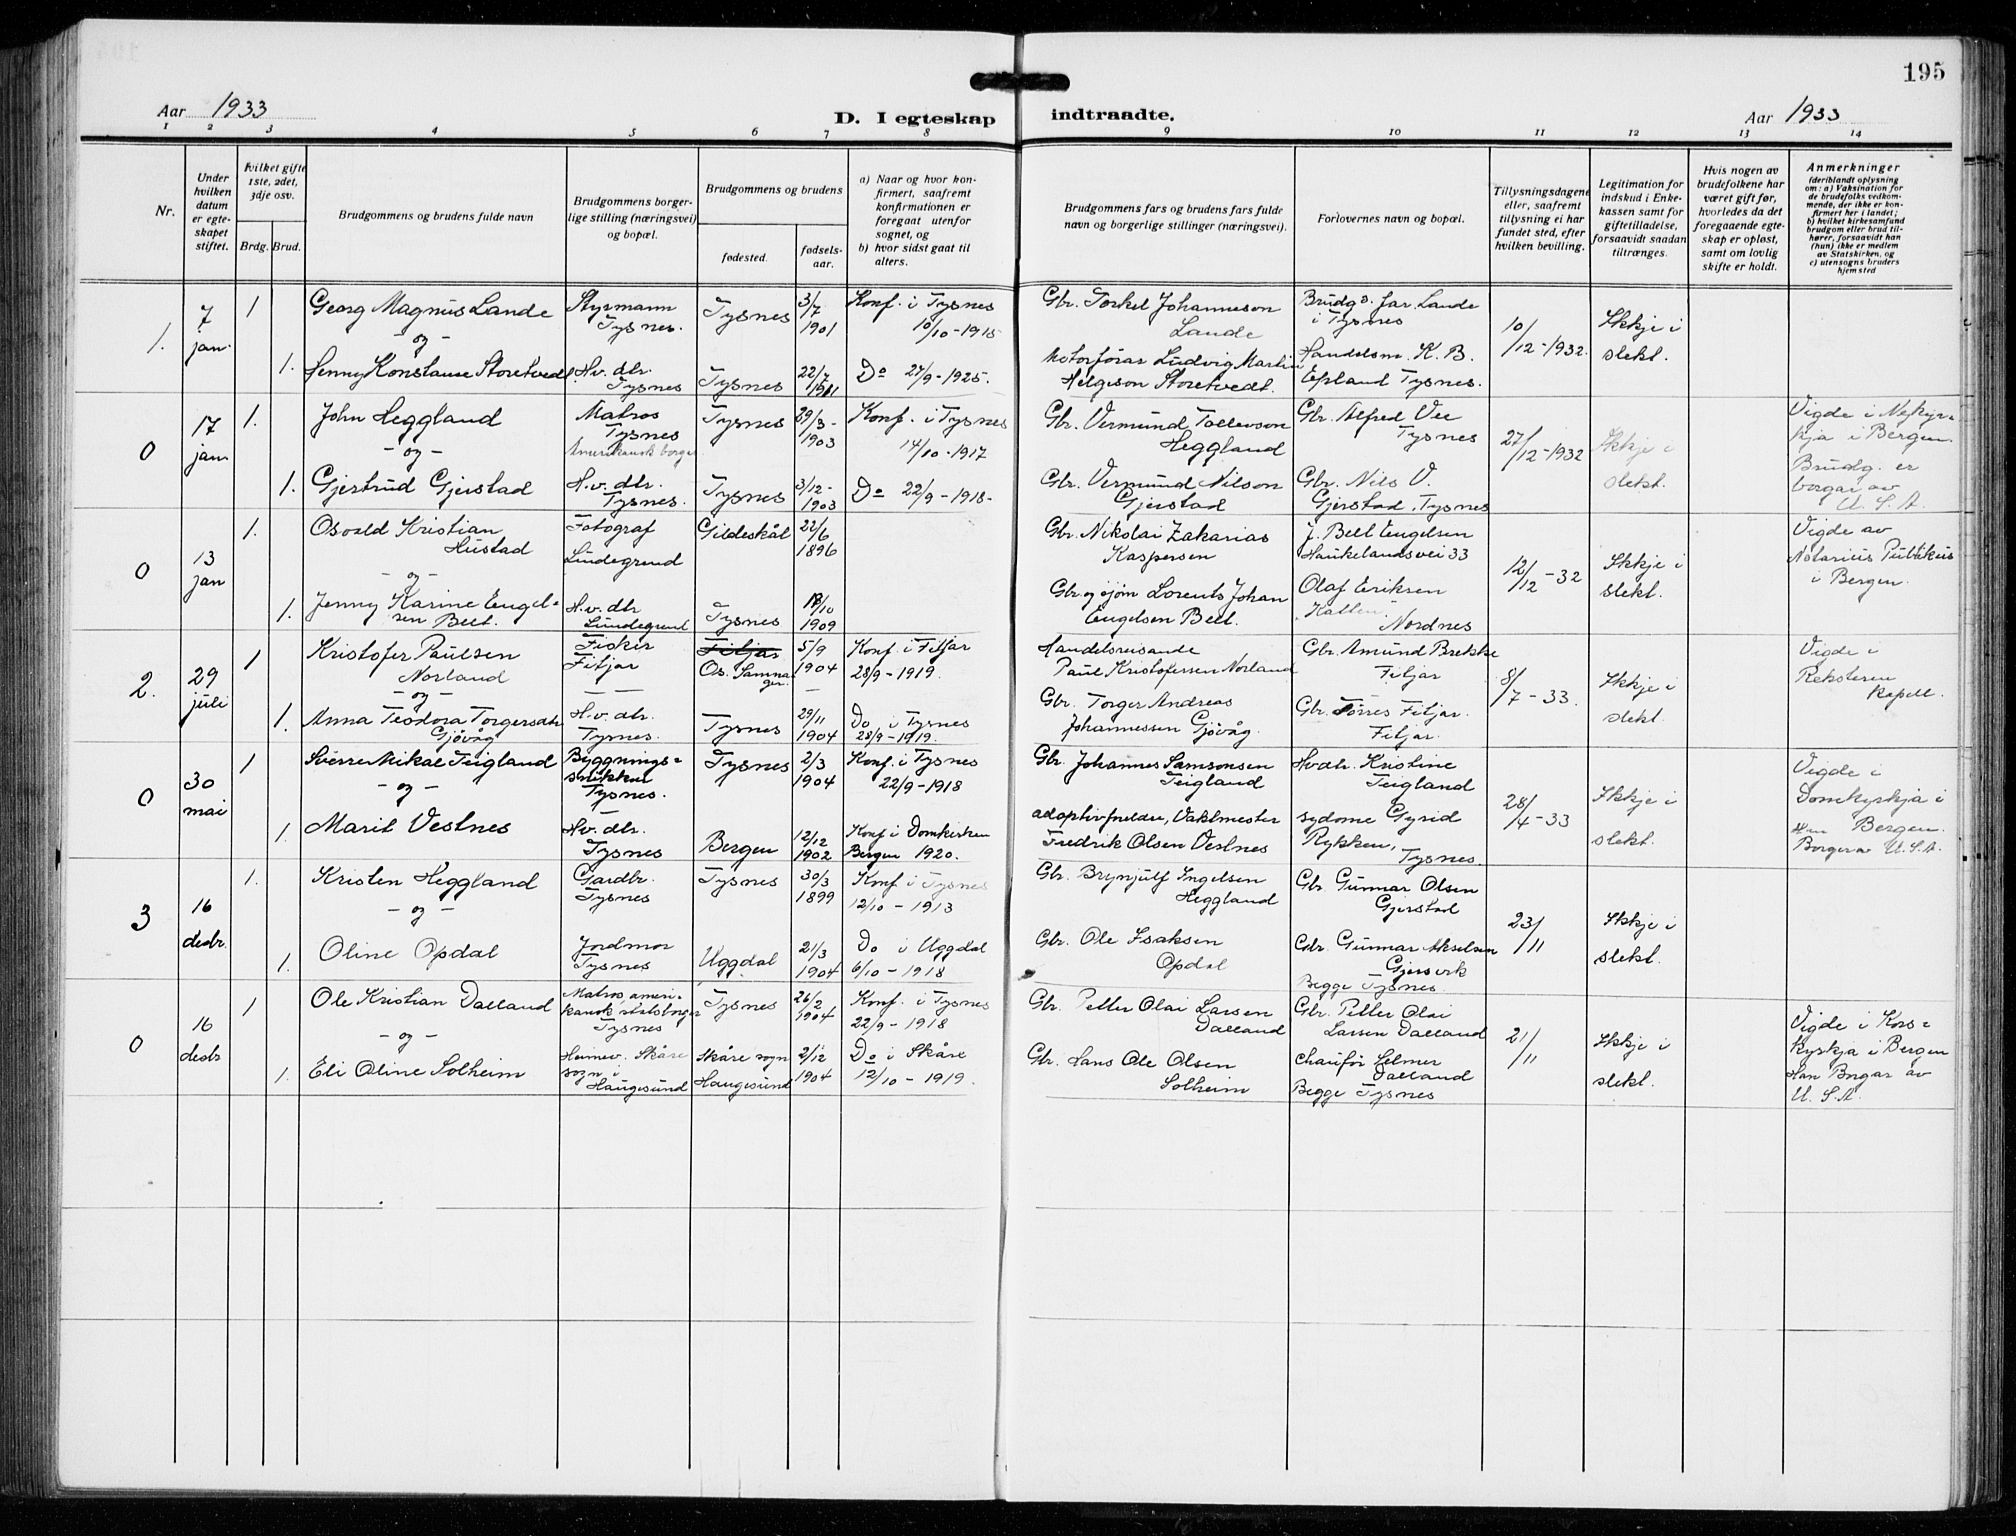 195
Aar 1933
D. I egteskap indtraadte.
Aar 1933
1 2 3 4 5 6 7 8 9 10 11 12 13 14
Nr.
Under hvilken datum er egteskapet stiftet.
Hvilket gifte 1ste, 2det, 3dje osv.
Brdg. Brud.
Brudgommens og brudens fulde navn
Brudgommens borgerlige stilling (næringsvei) og bopæl.
Brudgommens og brudens
fødested.
fødselsaar.
a) Naar og hvor konfirmert, saafremt konfirmationen er foregaat utenfor sognet, og
b) hvor sidst gaat til alters.
Brudgommens fars og brudens fars fulde navn og borgerlige stillinger (næringsvei).
Forlovernes navn og bopæl.
Tillysningsdagene eller, saafremt tillysning ei har fundet sted, efter hvilken bevilling.
Legitimation for indskud i Enkekassen samt for giftetilladelse, forsaavidt saadan tiltrænges.
Hvis nogen av brudefolkene har været gift før, hvorledes da det foregaaende egteskap er opløst, samt om lovlig skifte er holdt.
Anmerkninger (deriblandt oplysning om: a) Vaksination for de brudefolks vedkommende, der ikke er konfirmert her i landet; b) hvilket kirkesamfund brudgom eller brud tilhører, forsaavidt han (hun) ikke er medlem av Statskirken, og c) utensogns bruders hjemsted
1. 7 jan. 1 Georg Magnus Lande Styrmann Tysnes. Tysnes 3/7 1901 Konf. i Tysnes 10/10-1915
Gbr. Torkel Johanneson Lande
Brudgs. far Lande i Tysnes
10/12-1932. Ikkje i slekt.
- og -
1. Jenny Konstanse Storetvedt H.v. dtr. Tysnes Tysnes 22/7 1911 Do 27/9-1925.
Motorførar Ludvig Martin Helgeson Storetvedt.
Handelsm. K. B. Epland Tysnes.
0 17 jan 1. John Heggland Matros Tysnes Amerikansk borger Tysnes 29/3- 1903 Konf. i Tysnes 14/10-1917
Gbr. Vermund Tollevson Heggland
Gbr. Alfred Vee Tysnes
27/12-1932 Ikkje i slekt.
Vigde i Nykyrkja i Bergen. Brudg. er borgar av U. S. A.
- og -
1. Gjertrud Gjerstad H.v. dtr. Tysnes. Tysnes 3/12- 1903 Do 22/9-1918-
Gbr. Vermund Nilson Gjerstad
Gbr. Nils V. Gjerstad, Tysnes
0 13 jan 1. Osvald Kristian Hustad Fotograf Lindegrend Gildeskål 22/6 1896
Gbr. Nikolai Zakarias Kaspersen
J. Bell Engelsen Haukelandsvei 33
12/12-32 Ikkje i slekt.
Vigde av Notarius Publikus i Bergen.
- og -
1. Jenny Karine Engelsen Bell. H.v. dtr Lundegrend Tysnes 18/10 1909
Gbr. og sjøm Lorents Johan Engelsen Bell.
Olaf Eriksen Nordnes
2. 29 juli 1 Kristofer Paulsen Norland Fisker Fitjar Fitjar Os. Samnager. 5/9 1904 Konf. i Fitjar 28/9-1919.
Handelsreisande Paul Kristofersen Norland
Gbr. Amund Brekke Fitjar
8/7-33. Ikkje i slekt.
Vigde i Reksteren kapell.
- og -
1. Anna Teodora Torgersdtr Gjövåg H.v. dtr. Tysnes. Tysnes 29/11 1904 Do i Tysnes 28/9-1919.
Gbr. Torger Andreas Johannessen Gjövåg.
Gbr. Tørres Fitjar. Fitjar.
0 30 mai 1 Sverre Mikal Teigland Byggningssnikkar Tysnes. Tysnes 2/3 1904 Konf. i Tysnes 22/9-1918
Gbr. Johannes Samsonsen Teigland
Hv.dtr. Kristine Teigland
28/4-33 Ikkje i slekt.
Vigde i Domkyrkja i Bergen. Han Borger av U. S. A.
- og -
1. Marit Vestnes Hv. dtr. Tysnes Bergen 12/12 1902 Konf i Domkirken Bergen 1920.
adoptivforeldre, Vaktmester Fredrik Olsen Vestnes
sydome Gyrid Rykken, Tysnes
3 16 desbr. 1. Kristen Heggland Gardbr. Tysnes Tysnes 30/3 1899 Konf i Tysnes 12/10-1913
Gbr. Brynjulf Ingelsen Heggland
Gbr. Gunnar Olsen Gjerstad
23/11 Ikkje i slekt.
- og -
1. Oline Opdal Jordmor Tysnes Uggdal 21/3 1904 Do i Uggdal 6/10-1918
Gbr. Ole Isaksen Opdal
Gbr. Gunnar Akselsen Gjersvik Begge Tysnes.
0 16 desbr 1 Ole Kristian Dalland Matros, amerikansk statsborger Tysnes Tysnes 26/2 1904 Konf. i Tysnes 22/9-1918
Gbr. Petter Olai Larsen Dalland
Gbr. Petter Olai Larsen Dalland
21/11 Ikkje i slekt.
Vigde i Korskyrkja i Bergen Han Borgar av U. S. A.
- og -
1. Eli Oline Solheim Heimev. Skåre sogn i Haugesund Skåre sogn Haugesund 2/12 1904 Do i Skåre 12/10-1919.
Gbr. Hans Ole Olsen Solheim
Chaufør Elmer Dalland Begge Tysnes